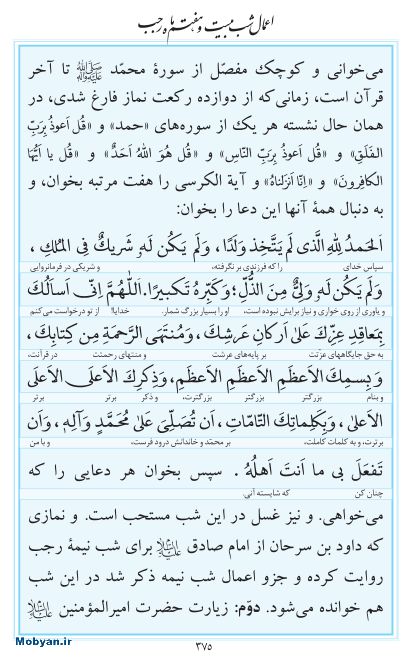 اعمال شب بیست و هفتم ماه رجب
می‌خوانی و کوچک مفصّل از سورهٔ محمّد ﷺ تا آخر
قرآن است، زمانی‌که از دوازده رکعت نماز فارغ شدی، در
همان حال نشسته هر یک از سوره‌های «حمد» و «قُل اَعوذُ بِرَبِّ
الفَلَقِ» و «قُل اَعوذُ بِرَبِّ النّاسِ» و «قُل هُوَ اللهُ اَحَدٌ» و «قُل یا اَیُّهَا
الکافِرونَ» و «اِنّا اَنزَلناهُ» و آیة الکرسی را هفت مرتبه بخوان، و
به دنبال همهٔ آنها این دعا را بخوان:
اَلحَمدُ لِلّٰهِ الَّذی لَم یَتَّخِذ وَلَدًا، وَلَم یَکُن لَهٗ شَریکٌ فِی المُلکِ،
سپاس خدای را که فرزندی بر نگرفته، و شریکی در فرمانروایی
وَلَم یَکُن لَهٗ وَلِیٌّ مِنَ الذُّلِّ؛ وَکَبِّرهُ تَکبیرًا. اَللّٰهُمَّ اِنّی اَسأَلُکَ
و یاوری از روی خواری و نیاز برایش نبوده است، او را بسیار بزرگ شمار. خدایا! از تو درخواست می‌کنم
بِمَعاقِدِ عِزِّکَ عَلیٰ اَرکانِ عَرشِکَ، وَمُنتَهَی الرَّحمَةِ مِن کِتابِکَ،
به حق جایگاههای عزّتت بر پایه‌های عرشت و منتهای رحمتت در قرآنت،
وَبِاسمِکَ الاَعظَمِ الاَعظَمِ الاَعظَمِ، وَذِکرِکَ الاَعلَی الاَعلَی
و بنام بزرگتر بزرگتر بزرگترت، و ذکر برتر برتر
الاَعلیٰ، وَبِکَلِماتِکَ التّامّاتِ، اَن تُصَلِّیَ عَلیٰ مُحَمَّدٍ وَآلِهٖ، وَاَن
برترت، و به کلمات کاملت، بر محمّد و خاندانش درود فرست، و با من
تَفعَلَ بی ما اَنتَ اَهلُهُ. سپس بخوان هر دعایی را که
چنان کن که شایسته آنی.
می‌خواهی. و نیز غسل در این شب مستحب است. و نمازی
که داود بن سرحان از امام صادق علیه السلام برای شب نیمهٔ رجب
روایت کرده و جزو اعمال شب نیمه ذکر شد در این شب
هم خوانده می‌شود. دوّم: زیارت حضرت امیرالمؤمنین علیه السلام
۳۷۵
Mobyan.ir